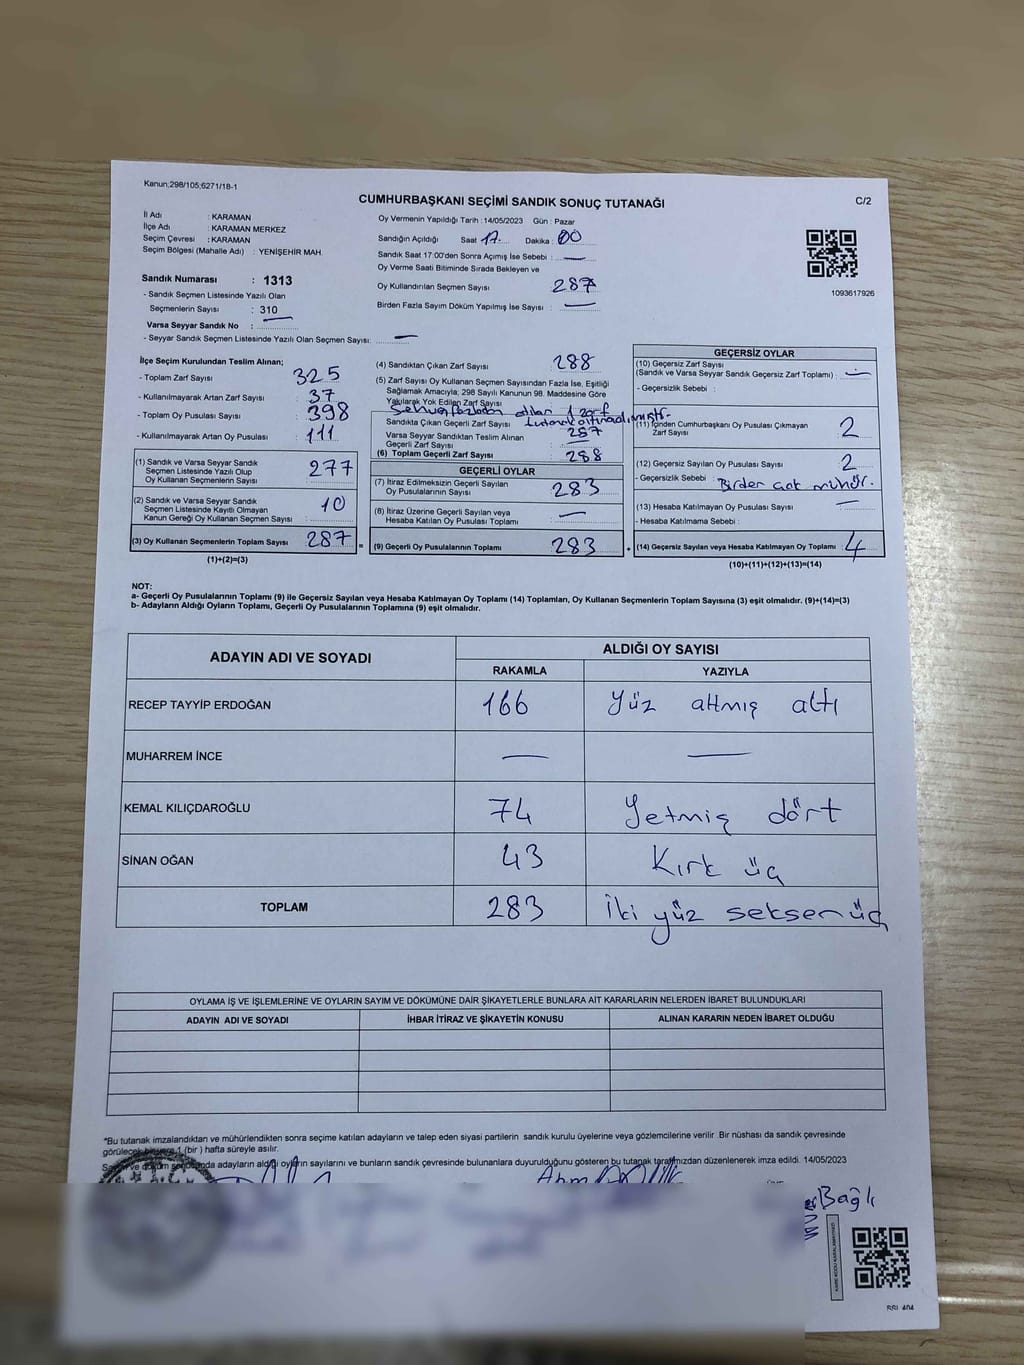 Kanun;298/105;6271/18-1
CUMHURBAŞKANI SEÇİMİ SANDIK SONUÇ TUTANAĞI
C/2
İl Adı : KARAMAN
İlçe Adı : KARAMAN MERKEZ
Seçim Çevresi : KARAMAN
Seçim Bölgesi (Mahalle Adı) : YENİŞEHİR MAH.
Sandık Numarası : 1313
- Sandık Seçmen Listesinde Yazılı Olan
Seçmenlerin Sayısı : 310
Varsa Seyyar Sandık No :
- Seyyar Sandık Seçmen Listesinde Yazılı Olan Seçmen Sayısı: —
Oy Vermenin Yapıldığı Tarih :14/05/2023 Gün : Pazar
Sandığın Açıldığı Saat 17 Dakika : 00
Sandık Saat 17:00'den Sonra Açımış İse Sebebi : —
Oy Verme Saati Bitiminde Sırada Bekleyen ve
Oy Kullandırılan Seçmen Sayısı 287
Birden Fazla Sayım Döküm Yapılmış İse Sayısı : —
1093617926
İlçe Seçim Kurulundan Teslim Alınan;
- Toplam Zarf Sayısı 325
- Kullanılmayarak Artan Zarf Sayısı : 37
- Toplam Oy Pusulası Sayısı : 398
- Kullanılmayarak Artan Oy Pusulası : 111
(1) Sandık ve Varsa Seyyar Sandık
Seçmen Listesinde Yazılı Olup
Oy Kullanan Seçmenlerin Sayısı 277
(2) Sandık ve Varsa Seyyar Sandık
Seçmen Listesinde Kayıtlı Olmayan
Kanun Gereği Oy Kullanan Seçmen Sayısı : 10
(3) Oy Kullanan Seçmenlerin Toplam Sayısı 287
(1)+(2)=(3)
(4) Sandıktan Çıkan Zarf Sayısı 288
(5) Zarf Sayısı Oy Kullanan Seçmen Sayısından Fazla İse, Eşitliği
Sağlamak Amacıyla; 298 Sayılı Kanunun 98. Maddesine Göre
Yakılarak Yok Edilen Zarf Sayısı
1 zarf
Sandıkta Çıkan Geçerli Zarf Sayısı
287
Varsa Seyyar Sandıktan Teslim Alınan
Geçerli Zarf Sayısı
(6) Toplam Geçerli Zarf Sayısı : 288
GEÇERLİ OYLAR
(7) İtiraz Edilmeksizin Geçerli Sayılan
Oy Pusulalarının Sayısı : 283
(8) İtiraz Üzerine Geçerli Sayılan veya
Hesaba Katılan Oy Pusulası Toplamı : —
(9) Geçerli Oy Pusulalarının Toplamı 283
GEÇERSİZ OYLAR
(10) Geçersiz Zarf Sayısı
(Sandık ve Varsa Seyyar Sandık Geçersiz Zarf Toplamı) : —
- Geçersizlik Sebebi :
(11) İçinden Cumhurbaşkanı Oy Pusulası Çıkmayan
Zarf Sayısı 2
(12) Geçersiz Sayılan Oy Pusulası Sayısı 2
- Geçersizlik Sebebi : Birden çok mühür.
(13) Hesaba Katılmayan Oy Pusulası Sayısı —
- Hesaba Katılmama Sebebi :
(14) Geçersiz Sayılan veya Hesaba Katılmayan Oy Toplamı 4
(10)+(11)+(12)+(13)=(14)
NOT:
a- Geçerli Oy Pusulalarının Toplamı (9) ile Geçersiz Sayılan veya Hesaba Katılmayan Oy Toplamı (14) Toplamları, Oy Kullanan Seçmenlerin Toplam Sayısına (3) eşit olmalıdır. (9)+(14)=(3)
b- Adayların Aldığı Oyların Toplamı, Geçerli Oy Pusulalarının Toplamına (9) eşit olmalıdır.
ADAYIN ADI VE SOYADI
ALDIĞI OY SAYISI
RAKAMLA YAZIYLA
RECEP TAYYİP ERDOĞAN 166 Yüz altmış altı
MUHARREM İNCE — —
KEMAL KILIÇDAROĞLU 74 Yetmiş dört
SİNAN OĞAN 43 Kırk üç
TOPLAM 283 İki yüz seksen üç
OYLAMA İŞ VE İŞLEMLERİNE VE OYLARIN SAYIM VE DÖKÜMÜNE DAİR ŞİKAYETLERLE BUNLARA AİT KARARLARIN NELERDEN İBARET BULUNDUKLARI
ADAYIN ADI VE SOYADI İHBAR İTİRAZ VE ŞİKAYETİN KONUSU ALINAN KARARIN NEDEN İBARET OLDUĞU
*Bu tutanak imzalandıktan ve mühürlendikten sonra seçime katılan adayların ve talep eden siyasi partilerin sandık kurulu üyelerine veya gözlemcilerine verilir .Bir nüshası da sandık çevresinde
görülecek bir yere 1 (bir ) hafta süreyle asılır.
Sayım ve döküm sonucunda adayların aldığı oyların sayılarını ve bunların sandık çevresinde bulunanlara duyurulduğunu gösteren bu tutanak tarafımızdan düzenlenerek imza edildi. 14/05/2023
Bağlı